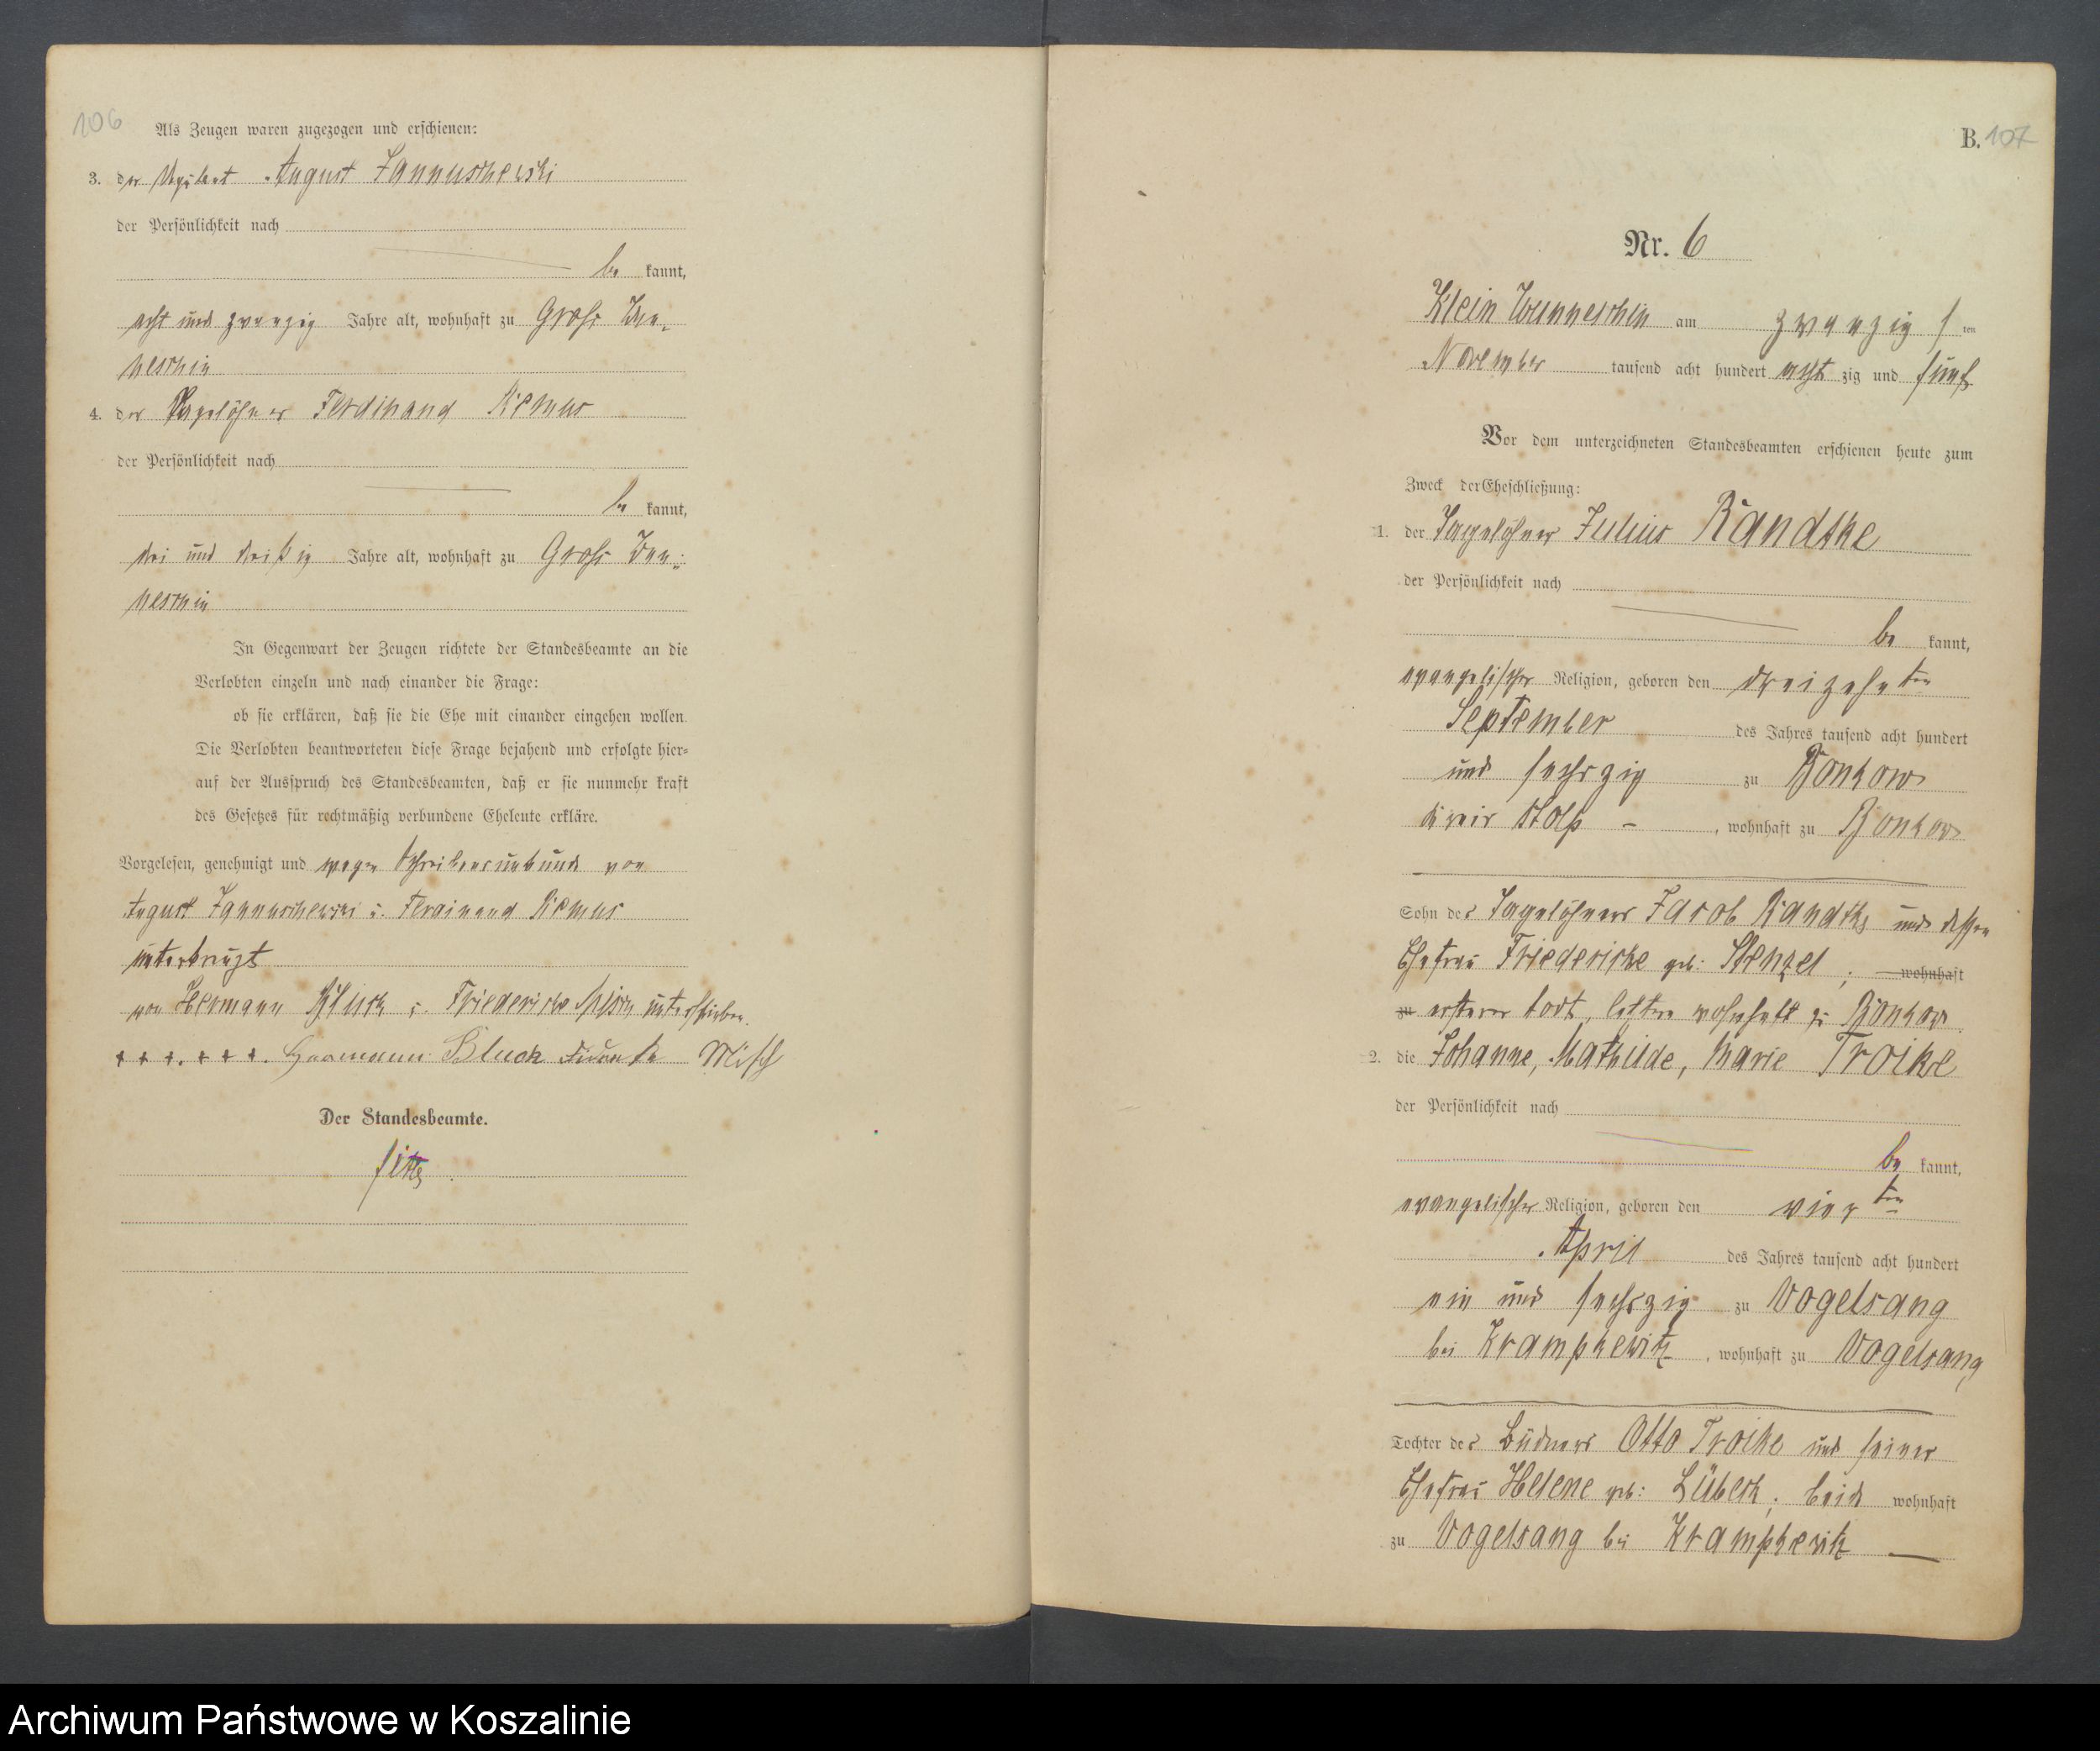 106
Als Zeugen waren zugezogen und erschienen:
3. der August Jannuschewski
der Persönlichkeit nach
be kannt,
acht und zwanzig Jahre alt, wohnhaft zu Gross Wun-
neschin
4. der Tagelöhner Ferdinand Remus
der Persönlichkeit nach
be kannt,
drei und dreißig Jahre alt, wohnhaft zu Gross Wun-
neschin
In Gegenwart der Zeugen richtete der Standesbeamte an die
Verlobten einzeln und nach einander die Frage:
ob sie erklären, daß sie die Ehe mit einander eingehen wollen.
Die Verlobten beantworteten diese Frage bejahend und erfolgte hier-
auf der Ausspruch des Standesbeamten, daß er sie nunmehr kraft
des Gesetzes für rechtmäßig verbundene Eheleute erkläre.
Vorgelesen, genehmigt und wegen Schreibensunkunde von
August Jannuschewski u. Ferdinand Remus
unterkreuzt
von Hermann Bluck u. Friedericke Misch unterschrieben.
+++. +++. Hermann Bluck Misch
Der Standesbeamte.
B. 107
Nr. 6
Klein Wunneschin am zwanzigsten
November tausend acht hundert achtzig und fünf
Vor dem unterzeichneten Standesbeamten erschienen heute zum
Zweck der Eheschließung:
1. der Tagelöhner Julius Kandtke
der Persönlichkeit nach
be kannt,
evangelischer Religion, geboren den dreizehnten
September des Jahres tausend acht hundert
und sechszig zu
Kreis Stolp - , wohnhaft zu
Sohn des Tagelöhners Jacob Kandtke und dessen
Ehefrau Friedericke geb: Stenzel, wohnhaft
zu ersterer todt, letztere wohnhaft zu
2. die Johanne, Mathilde, Marie Troike
der Persönlichkeit nach
be kannt,
evangelischer Religion, geboren den vierten
April des Jahres tausend acht hundert
ein und sechszig zu Vogelsang
bei Krampkewitz, wohnhaft zu Vogelsang
Tochter des Büdners Otto Troike und seiner
Ehefrau Helene geb: Lübeck, beide wohnhaft
zu Vogelsang bei Krampkewitz
Archiwum Państwowe w Koszalinie